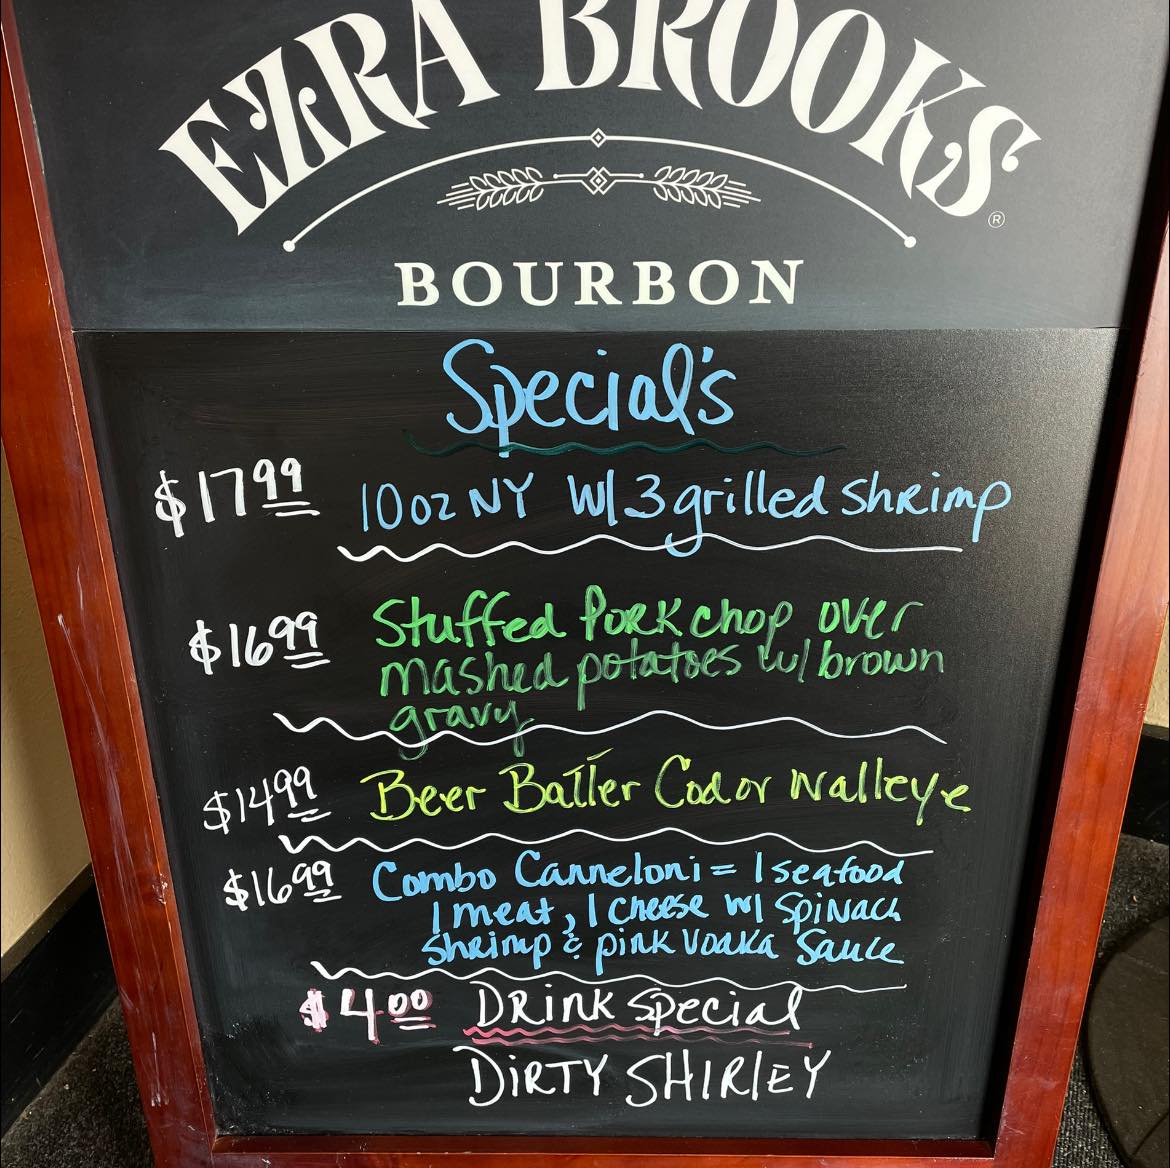 EZRA BROOKS
®
BOURBON
Special's
$17 99 10oz NY W/ 3 grilled shrimp
$16 99 Stuffed Pork chop over
mashed potatoes w/ brown
gravy
$14 99 Beer Batter Cod or Walleye
$16 99 Combo Canneloni = 1 seafood
1 meat, 1 cheese w/ spinach
shrimp & pink vodka sauce
$4 00 Drink Special
DiRTY SHIRLEY